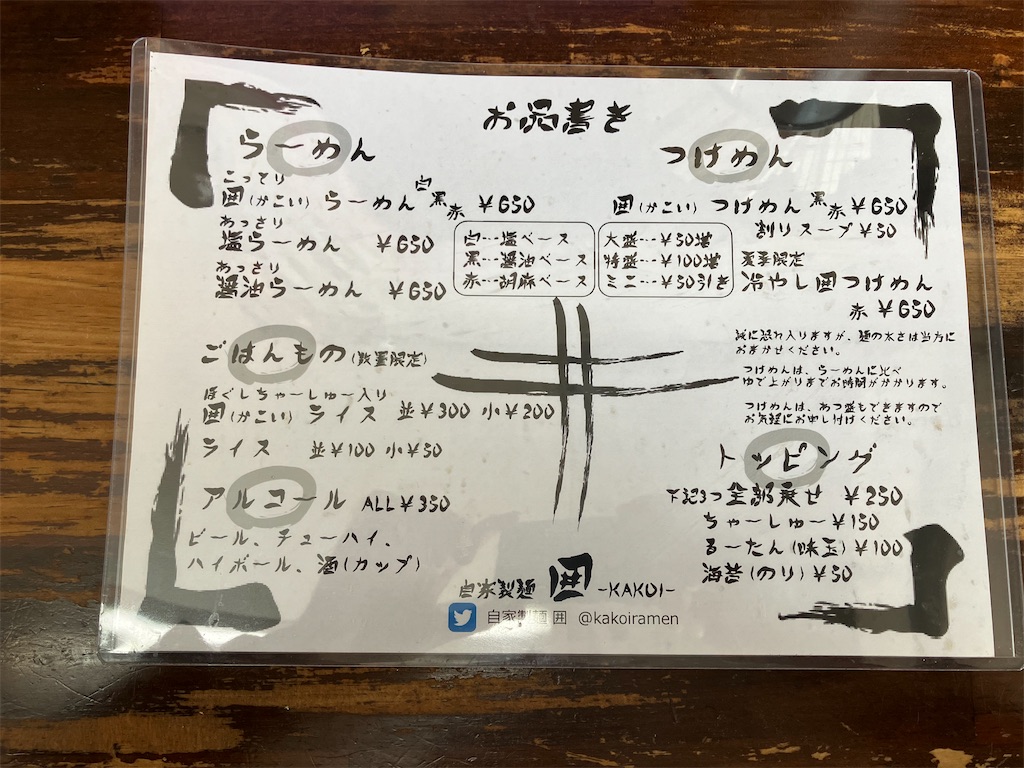 お品書き
らーめん
こってり
囲(かこい)らーめん 白 黒 赤 ¥650
あっさり
塩らーめん ¥650
あっさり
醤油らーめん ¥650
白…塩ベース
黒…醤油ベース
赤…胡麻ベース
ごはんもの(数量限定)
ほぐしちゃーしゅー入り
囲(かこい)ライス 並¥300 小¥200
ライス 並¥100 小¥50
アルコール ALL¥350
ビール、チューハイ、
ハイボール、酒(カップ)
つけめん
囲(かこい)つけめん 黒 赤 ¥650
割りスープ¥50
大盛…¥50増
特盛…¥100増
ミニ…¥50引き
夏季限定
冷やし囲つけめん
赤 ¥650
誠に恐れ入りますが、麺の太さは当方に
おまかせください。
つけめんは、らーめんに比べ
ゆで上がりまでお時間がかかります。
つけめんは、あつ盛もできますので
お気軽にお申し付けください。
トッピング
下記3つ全部乗せ ¥250
ちゃーしゅー¥150
るーたん(味玉)¥100
海苔(のり)¥50
自家製麺 囲 -KAKOI-
自家製麺 囲 @kakoiramen